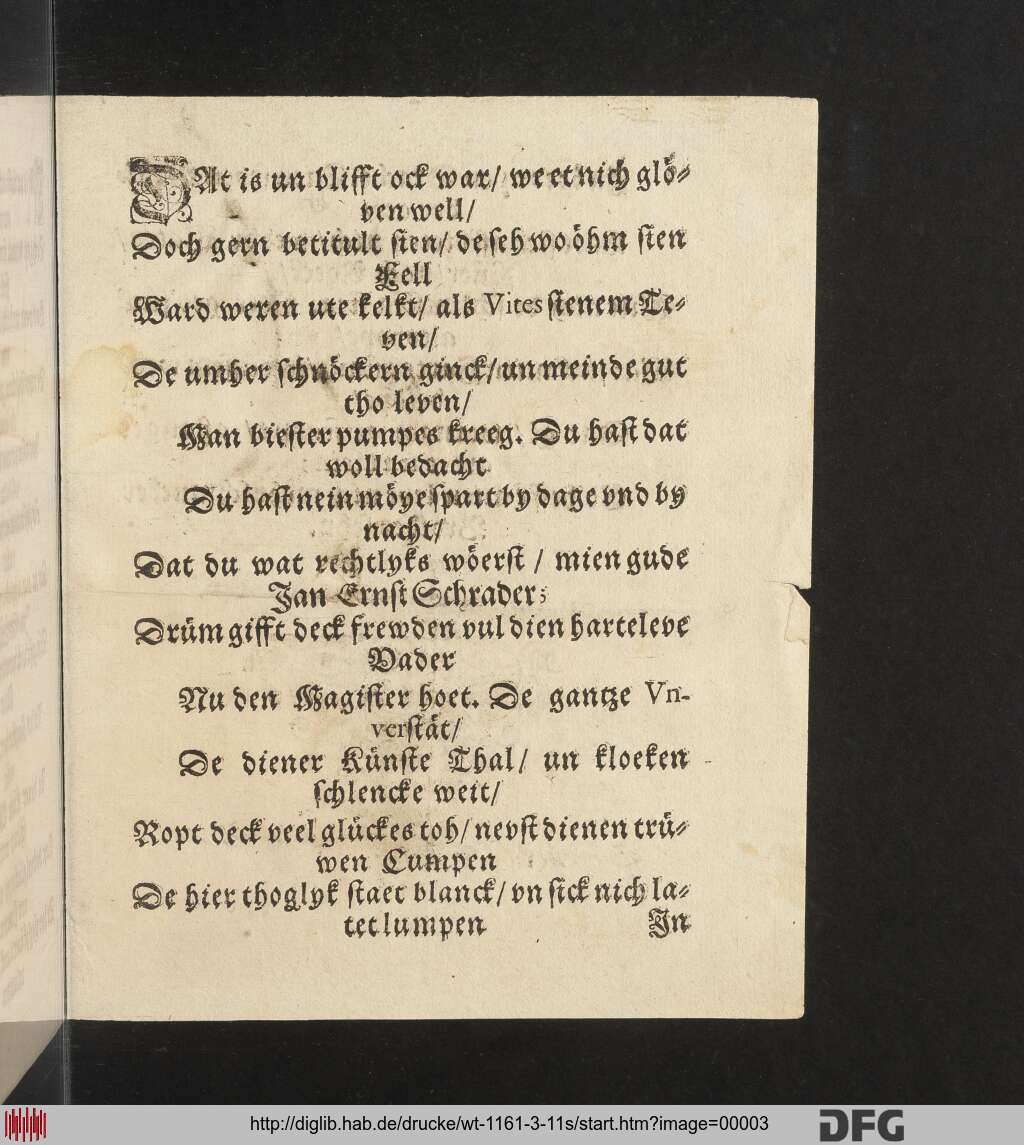 DAt is un blifft ock war/ we et nich glö⸗
ven well/
Doch gern betitult sien/ de seh wo öhm sien
Fell
Ward weren ute kelkt/ als Vites sienem Te⸗
ven/
De umher schnöckern ginck/ un meinde gut
tho leven/
Man biester pumpes kreeg. Du hast dat
woll bedacht
Du hast nein möye spart by dage vnd by
nacht/
Dat du wat rechtlyks wöerst / mien gude
Jan Ernst Schrader;
Drüm gifft deck frewden vul dien harteleve
Vader
Nu den Magister hoet. De gantze Vn-
verstät/
De diener Künste Thal/ un kloeken
schlencke weit/
Ropt deck veel glückes toh/ nevst dienen trü⸗
wen Cumpen
De hier thoglyk staet blanck/ vn sick nich la⸗
tet lumpen
In
http://diglib.hab.de/drucke/wt-1161-3-11s/start.htm?image=00003
DFG